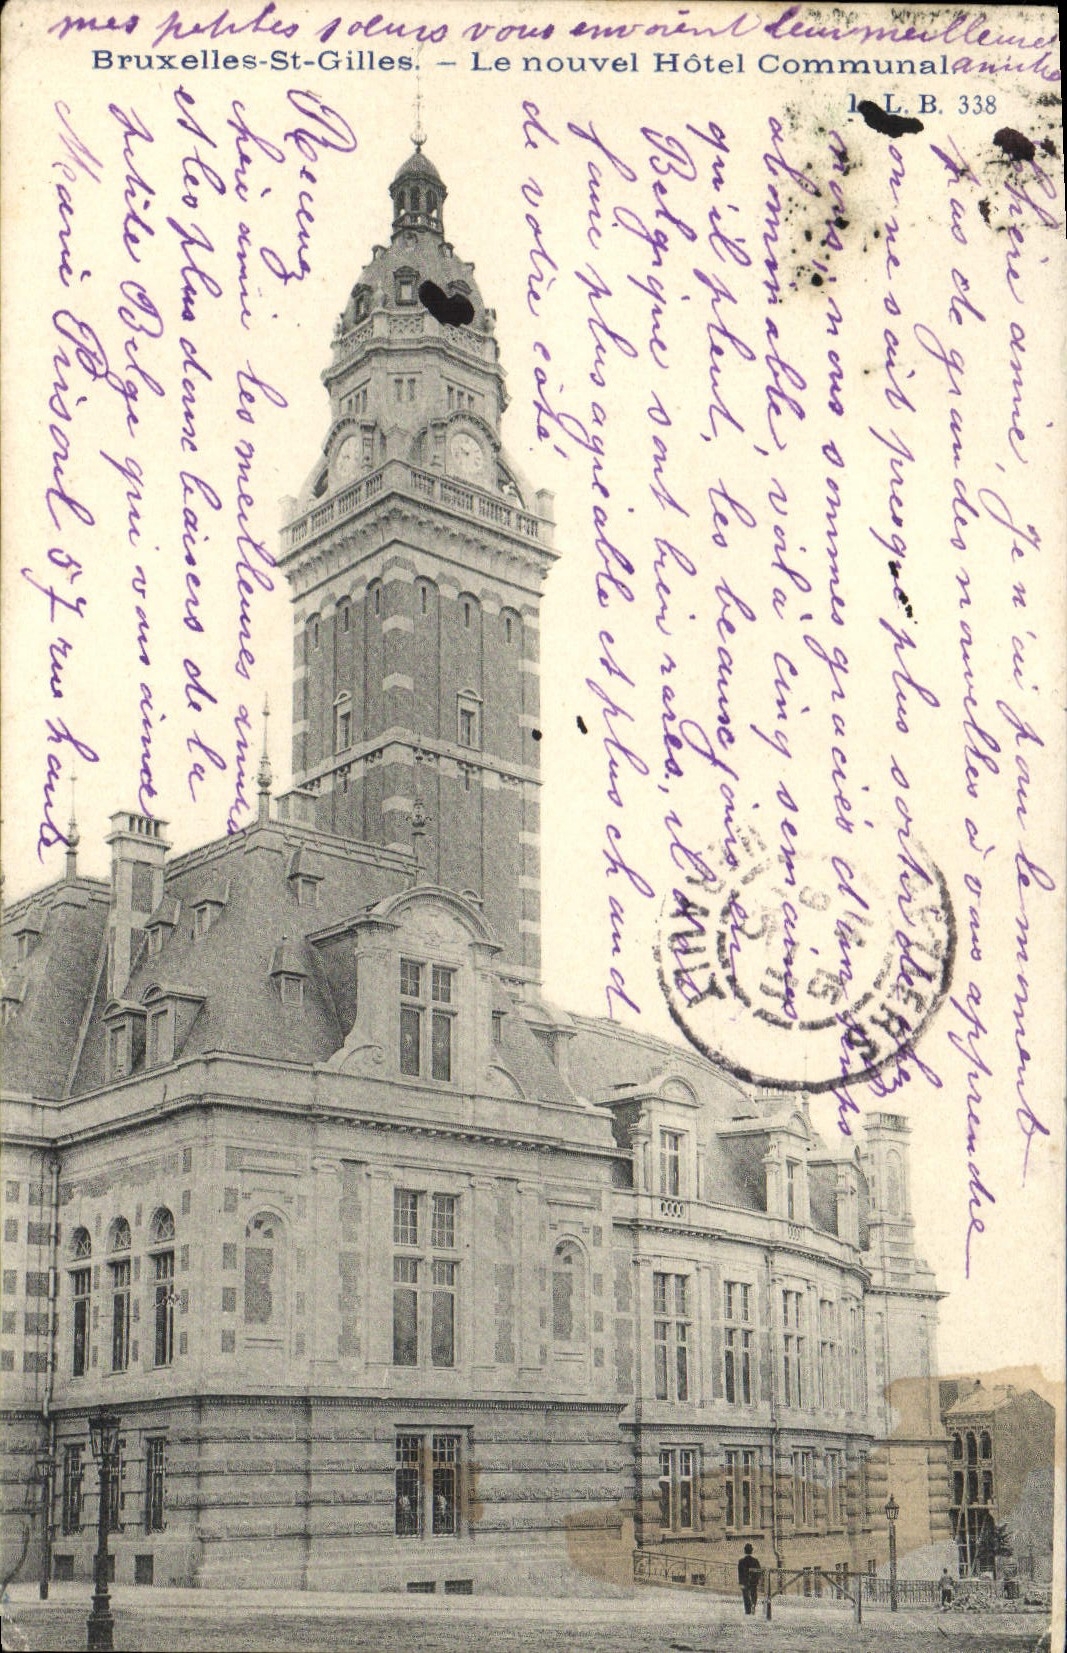 mes petites soeurs vous envoient leur meilleure
amitié
Bruxelles-St-Gilles. – Le nouvel Hôtel Communal
L. B. 338
Chère amie, Je n'ai pour le moment
pas de grandes nouvelles à vous apprendre
on ne sait presque plus sortir de chez
nous, nous sommes graciés d'un temps
abominable, voilà cinq semaines
qu'il pleut, les beaux jours en
Belgique sont bien rares, il doit
faire plus agréable et plus chaud
de votre côté.
Recevez
chère amie les meilleures amitiés
et les plus doux baisers de la
petite Belge qui vous aime
Marie Brisoul 57 rue haute
ANTWERPEN